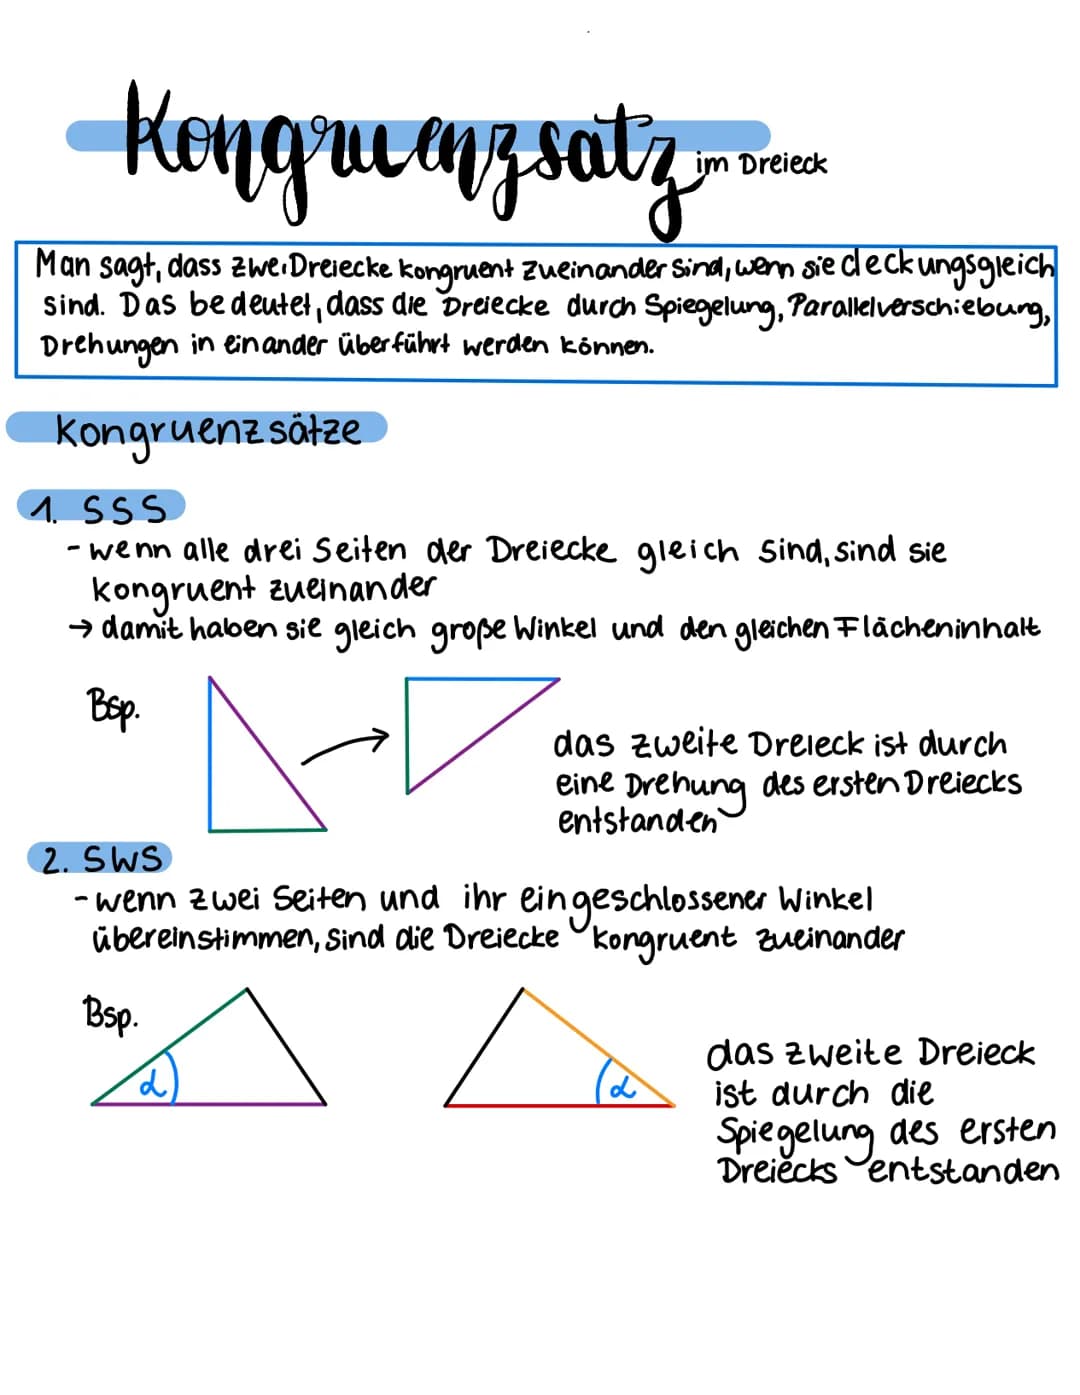 Kongruenzsatz im Dreieck
Man sagt, dass zwei Dreiecke kongruent zueinander sind, wenn sie deckungsgleich
sind. Das bedeutet, dass die Dreiecke durch Spiegelung, Parallelverschiebung,
Drehungen in einander überführt werden können.
Kongruenzsätze
1. SSS
- wenn alle drei Seiten der Dreiecke gleich sind, sind sie
kongruent zueinander
→ damit haben sie gleich große Winkel und den gleichen Flächeninhalt
Bsp.
das zweite Dreieck ist durch
eine Drehung des ersten Dreiecks
entstanden
2. SWS
- wenn zwei Seiten und ihr eingeschlossener Winkel
übereinstimmen, sind die Dreiecke kongruent zueinander
Bsp.
α
α
das zweite Dreieck
ist durch die
Spiegelung des ersten
Dreiecks entstanden